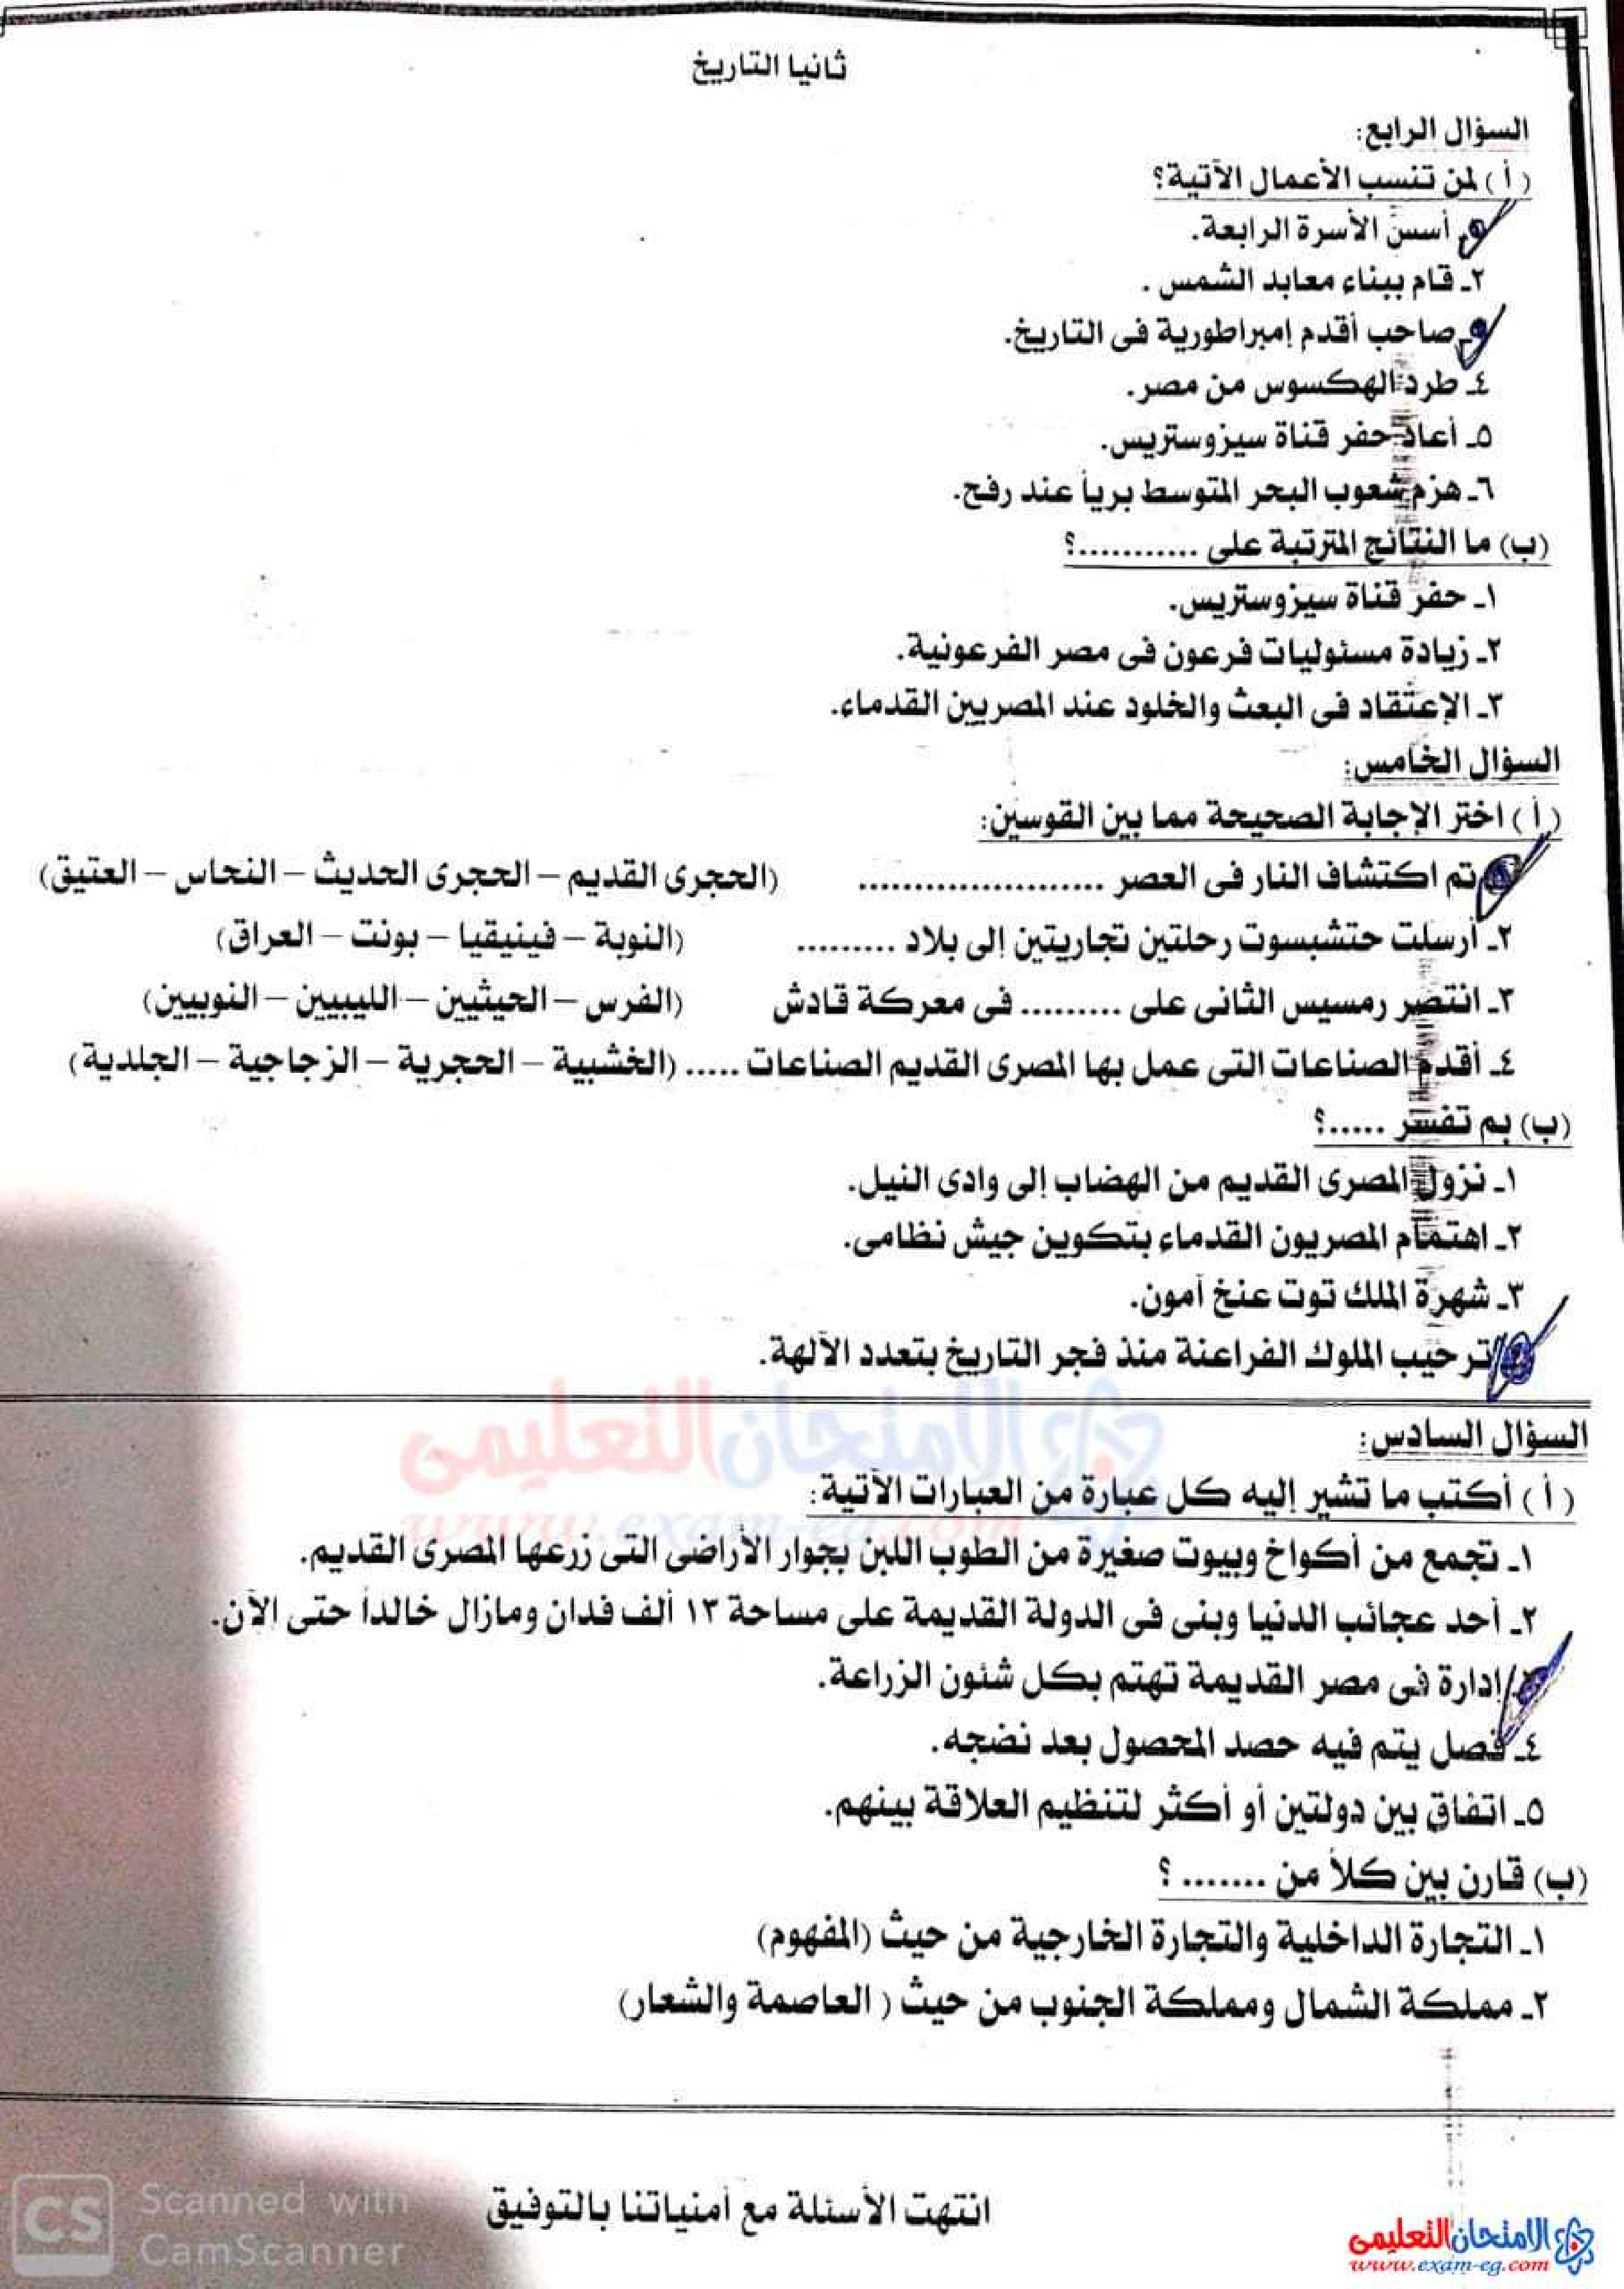 ثانيا التاريخ
السؤال الرابع:
(أ) لمن تنسب الأعمال الآتية؟
أسس الأسرة الرابعة.
٢ـ قام ببناء معابد الشمس .
صاحب أقدم إمبراطورية فى التاريخ.
٤ـ طرد الهكسوس من مصر.
٥ـ أعاد حفر قناة سيزوستريس.
٦ـ هزم شعوب البحر المتوسط برياً عند رفح.
(ب) ما النتائج المترتبة على ...........؟
١ـ حفر قناة سيزوستريس.
٢ـ زيادة مسئوليات فرعون فى مصر الفرعونية.
٣ـ الإعتقاد فى البعث والخلود عند المصريين القدماء.
السؤال الخامس:
(أ) اختر الإجابة الصحيحة مما بين القوسين:
تم اكتشاف النار فى العصر ..................... (الحجرى القديم – الحجرى الحديث – النحاس – العتيق)
٢ـ أرسلت حتشبسوت رحلتين تجاريتين إلى بلاد ......... (النوبة – فينيقيا – بونت – العراق)
٣ـ انتصر رمسيس الثانى على ......... فى معركة قادش (الفرس – الحيثيين – الليبيين – النوبيين)
٤ـ أقدم الصناعات التى عمل بها المصرى القديم الصناعات ..... (الخشبية – الحجرية – الزجاجية – الجلدية)
(ب) بم تفسر .....؟
١ـ نزول المصرى القديم من الهضاب إلى وادى النيل.
٢ـ اهتمام المصريون القدماء بتكوين جيش نظامى.
٣ـ شهرة الملك توت عنخ آمون.
ترحيب الملوك الفراعنة منذ فجر التاريخ بتعدد الآلهة.
الامتحان التعليمى
www.exam-eg.com
السؤال السادس:
(أ) أكتب ما تشير إليه كل عبارة من العبارات الآتية:
١ـ تجمع من أكواخ وبيوت صغيرة من الطوب اللبن بجوار الأراضى التى زرعها المصرى القديم.
٢ـ أحد عجائب الدنيا وبنى فى الدولة القديمة على مساحة ١٣ ألف فدان ومازال خالداً حتى الآن.
إدارة فى مصر القديمة تهتم بكل شئون الزراعة.
٤ـ فصل يتم فيه حصد المحصول بعد نضجه.
٥ـ اتفاق بين دولتين أو أكثر لتنظيم العلاقة بينهم.
(ب) قارن بين كلاً من ....... ؟
١ـ التجارة الداخلية والتجارة الخارجية من حيث (المفهوم)
٢ـ مملكة الشمال ومملكة الجنوب من حيث ( العاصمة والشعار)
انتهت الأسئلة مع أمنياتنا بالتوفيق
CS Scanned with CamScanner
الامتحان التعليمى
www.exam-eg.com